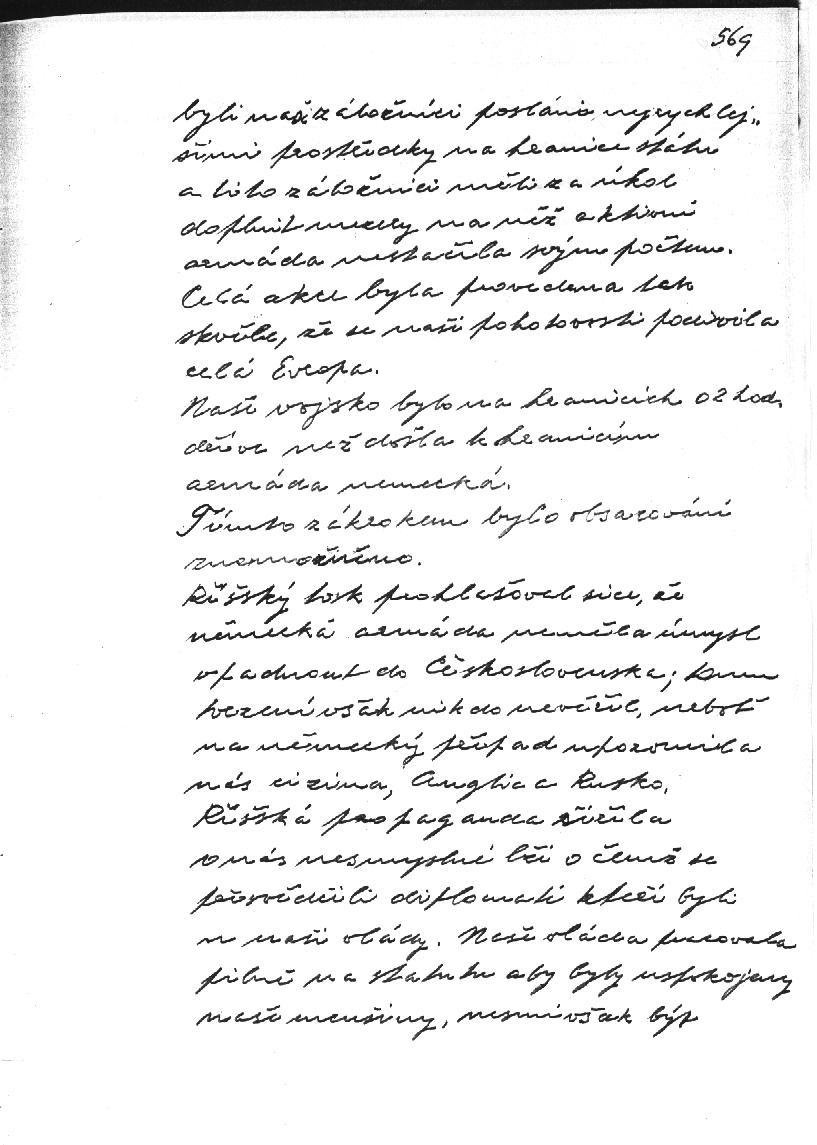 569
byli naši záložníci posláni nejrychlej„
šími prostředky na hranice státu
a tito záložníci měli za úkol
doplnit mezery na něž aktivní
armáda nestačila svým počtem.
Celá akce byla provedena tak
skvěle, že se naší pohotovosti podivila
celá Evropa.
Naše vojsko bylo na hranicích o 2 hod.
dříve než došla k hranicím
armáda nemecká.
Tímto zákrokem bylo obsazování
znemožněno.
Říšský tisk prohlašoval sice, že
německá armáda neměla úmysl
vpadnout do Československa; tomu
tvrzení však nikdo nevěřil, neboť
na německý přepad upozornila
nás cizina, Anglie a Rusko.
Říšská propaganda šířila
o nás nesmyslné lži o čemž se
přesvědčili diplomati kteří byli
u naší vlády. Naše vláda pracovala
pilně na statutu aby byly uspokojeny
naše menšiny, nesmí však být